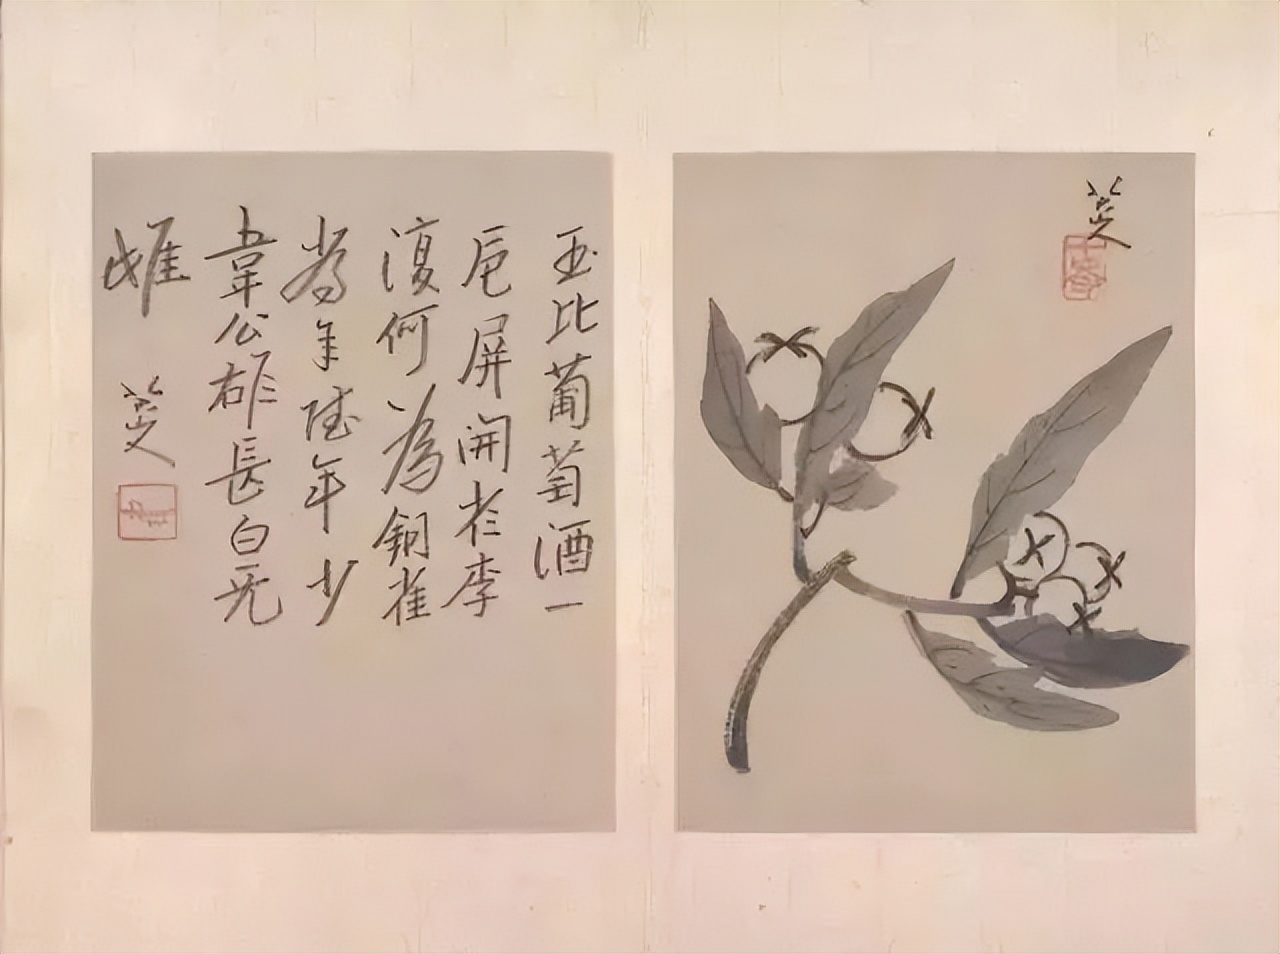 八大山人
玉比葡萄酒一
卮屏開李
復何為銅雀
年年少
韋公雄長白无
雌
八大山人